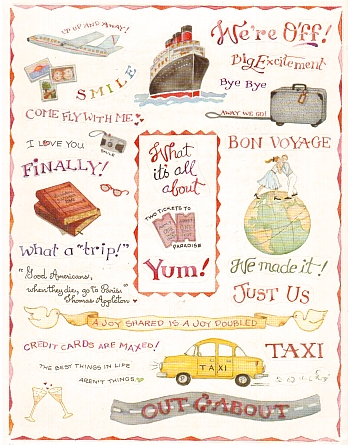 UP UP AND AWAY!
We're Off!
Big Excitement
SMILE
Bye Bye
COME FLY WITH ME
AWAY WE GO!
I LOVE YOU
SMILE
BON VOYAGE
FINALLY!
What
it's all
about
TWO TICKETS TO
PARADISE
Yum!
What a "trip!"
"Good Americans,
when they die, go to Paris."
Thomas Appleton
We made it-!
JUST US
A JOY SHARED IS A JOY DOUBLED
CREDIT CARDS ARE MAXED!
TAXI
TAXI
THE BEST THINGS IN LIFE
AREN'T THINGS
OUT & ABOUT